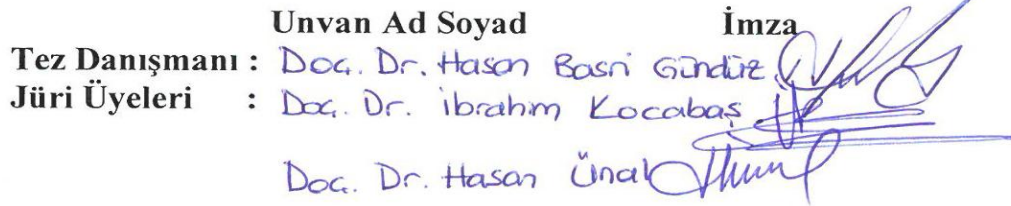 Unvan Ad Soyad İmza
Tez Danışmanı : Doç. Dr. Hasan Basri Gündüz
Jüri Üyeleri : Doç. Dr. İbrahim Kocabaş
Doç. Dr. Hasan Ünal